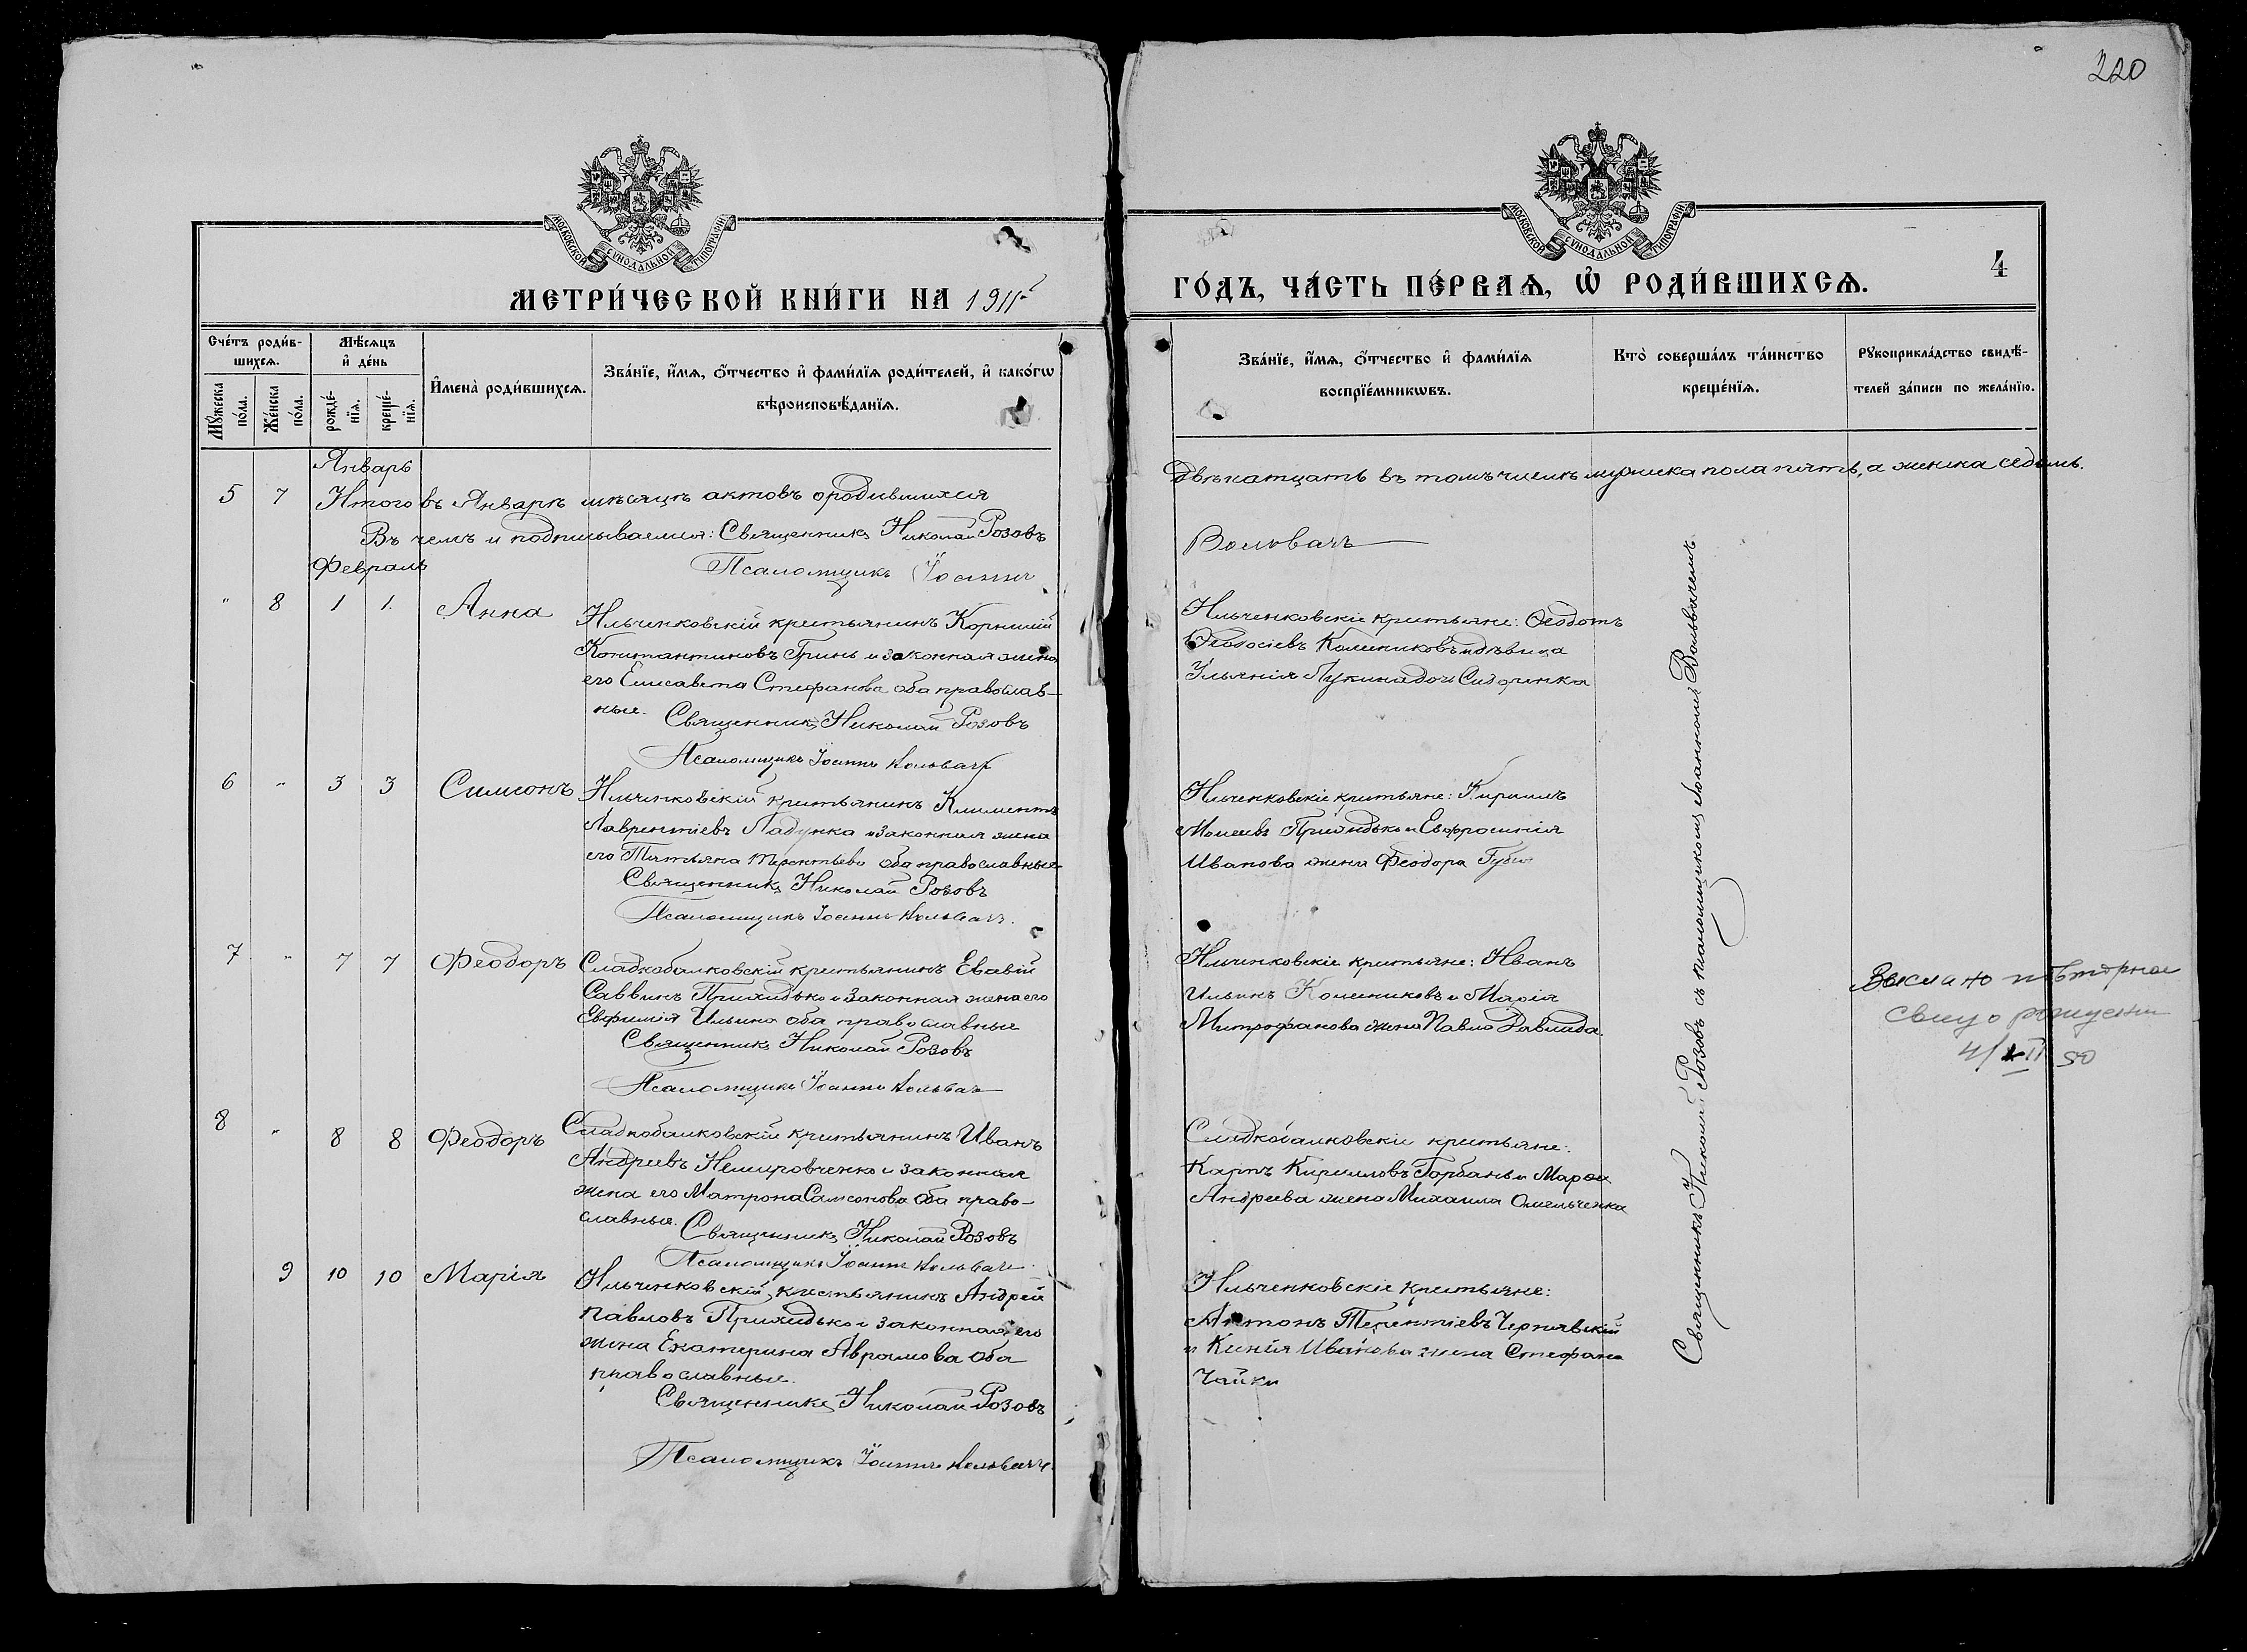 220
МОСКОВСКОЙ СѴНОДАЛЬНОЙ ТИПОГРАФІИ.
МОСКОВСКОЙ СѴНОДАЛЬНОЙ ТИПОГРАФІИ.
МЕТРИ́ЧЕСКОЙ КНИ́ГИ НА 1911 г.
ГО́ДЪ, ЧА́СТЬ ПЕ́РВАѦ, Ѽ РОДИ́ВШИХСѦ.
4
Сче́тъ роди́в-
шихсѧ.
Мꙋ́жеска
по́ла.
Же́нска
по́ла.
Мѣ́сѧцъ
и҆ де́нь
рожде́-
нїѧ.
креще́-
нїѧ.
И҆мена̀ роди́вшихсѧ.
Зва́нїе, и҆́мѧ, ѻ҆́тчество и҆ фами́лїѧ роди́телей, и҆ како́гѡ
вѣроисповѣ́данїѧ.
Зва́нїе, и҆́мѧ, ѻ҆́тчество и҆ фами́лїѧ
воспрїе́мникѡвъ.
Кто̀ соверша́лъ та́инство
креще́нїѧ.
Рꙋкоприкла́дство свидѣ́-
телей за́писи по жела́нїю.
Январь
5 7 Итого въ Январѣ мѣсяцѣ актовъ о родившихся
Двѣнатцать въ томъ числѣ мужска пола пять, а женска седьмь.
Въ чемъ и подписываемся: Священникъ Николай Розовъ
Псаломщикъ Іоаннъ
Вольвачъ
Февраль
" 8 1 1. Анна
Ильченковскій крестьянинъ Корнилій
Константиновъ Гринь и законная жена
его Елисавета Стефанова оба православ-
ные. Священникъ Николай Розовъ
Псаломщикъ Іоаннъ Вольвачъ
Ильченковскіе крестьяне: Ѳеодотъ
Ѳеодосіевъ Колесниковъ и дѣвица
Ульянія Лукина дочь Сидоренка
6 " 3 3 Симеонъ
Ильченковскій крестьянинъ Климентъ
Лаврентіевъ Ладунка и законная жена
его Татьяна Терентьева оба православные
Священникъ Николай Розовъ
Псаломщикъ Іоаннъ Вольвачъ.
Ильченковскіе крестьяне: Кириллъ
Моисеевъ Прийдько и Евфросинія
Иванова жена Феодора Губы
7 " 7 7 Феодоръ
Сладкобалковскій крестьянинъ
Саввинъ Прихидько и законная жена его
Евфимія Ильина оба православные
Священникъ Николай Розовъ
Псаломщикъ Іоаннъ Вольвачъ
Ильченковскіе крестьяне: Иванъ
Ильинъ Колесниковъ и Марія
Митрофанова жена Павла Давлида
Выслано повторное
свид о рождении
4/XII 50
8 " 8 8 Феодоръ
Сладкобалковскій крестьянинъ Иванъ
Андреевъ Немировченко и законная
жена его Матрона Самсонова оба право-
славные. Священникъ Николай Розовъ
Псаломщикъ Іоаннъ Вольвачъ.
Сладкобалковскіе крестьяне:
Карпъ Кирилловъ Горбань и Марѳа
Андреева жена Михаила Омельченка
9 10 10 Марія
Ильченковскій крестьянинъ Андрей
Павловъ Прихидько и законная его
жена Екатерина Аврамова оба
православные.
Священникъ Николай Розовъ
Псаломщикъ Іоаннъ Вольвачъ.
Ильченковскіе крестьяне:
Антонъ Терентіевъ Чернявскій
и Ксенія Иванова жена Стефана
Чайки
Священникъ Николай Розовъ съ псаломщикомъ Іоанномъ Вольвачемъ.